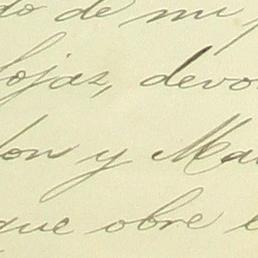 do de mi
lojas, devo
don y Ma
que obre e